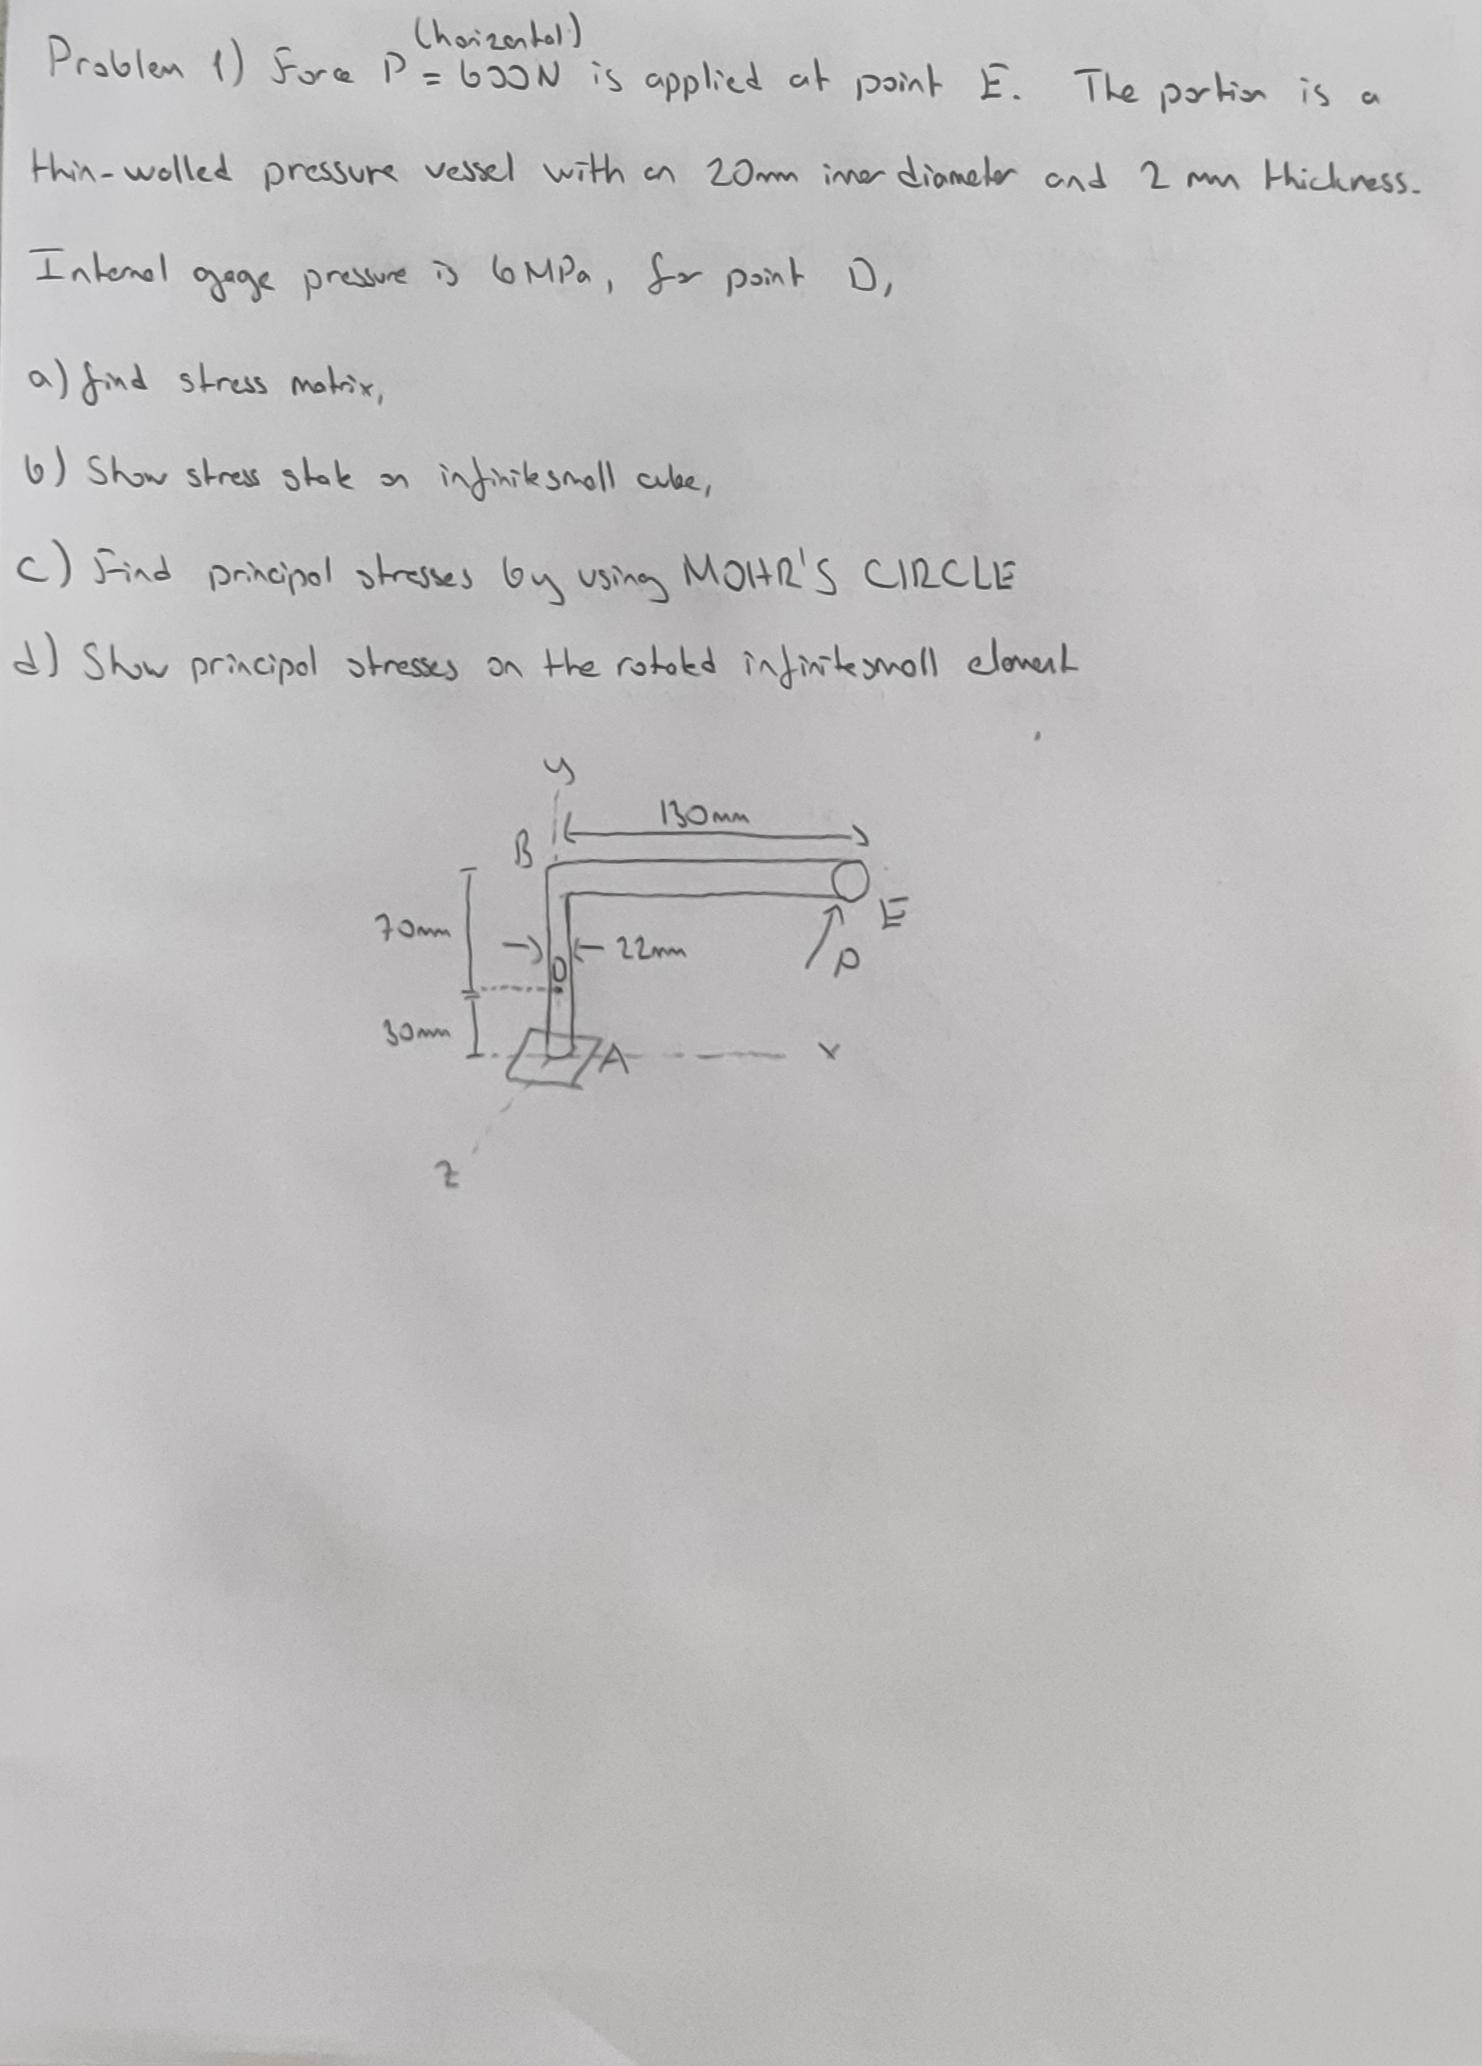 (horizontal)
Problem 1) Force P = 600N is applied at point E. The portion is a
thin-walled pressure vessel with an 20mm inner diameter and 2 mm thickness.
Internal gage pressure is 6 MPa, for point D,
a) find stress matrix,
b) Show stress state on infinitesmall cube,
c) Find principal stresses by using MOHR'S CIRCLE
d) Show principal stresses on the rotated infinitesmall element
y
130mm
B
E
70mm
22mm
P
D
30mm
A
x
z